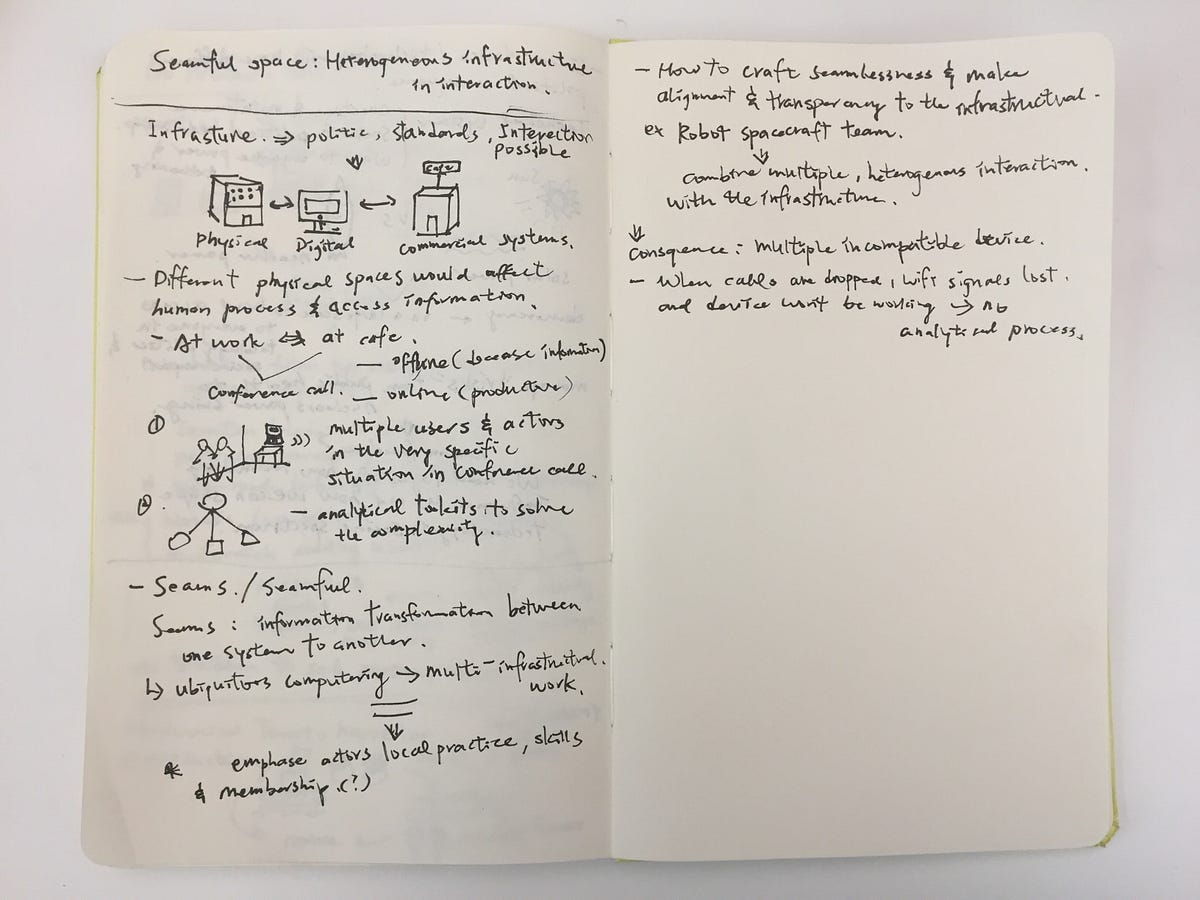 Seamful space : Heterogeneous infrastructure
in interaction.
Infrasture. ⇒ politic, standards, Interection
possible
cafe
physical Digital commercial systems.
- Different physical spaces would affect
human process & access information.
- At work ⇔ at cafe.
— offline (decrease information)
Conference call. — online (productive)
① multiple users & actors
in the very specific
situation in conference call.
②. - analytical toolkits to solve
the complexity.
- Seams. / Seamful.
Seams : information transformation between
one system to another.
↳ ubiquitors computering → multi-infrastructral.
work.
* emphase actors local practice, skills
& membership.(?)
- How to craft seamlessness & make
alignment & transparency to the infrastructual.
ex Robot spacecraft team.
combine multiple, heterogenous interaction.
with the infrastructure.
consquence : multiple incompatible device.
- When calls are dropped, wifi signals lost.
and device won't be working → no
analytical process.